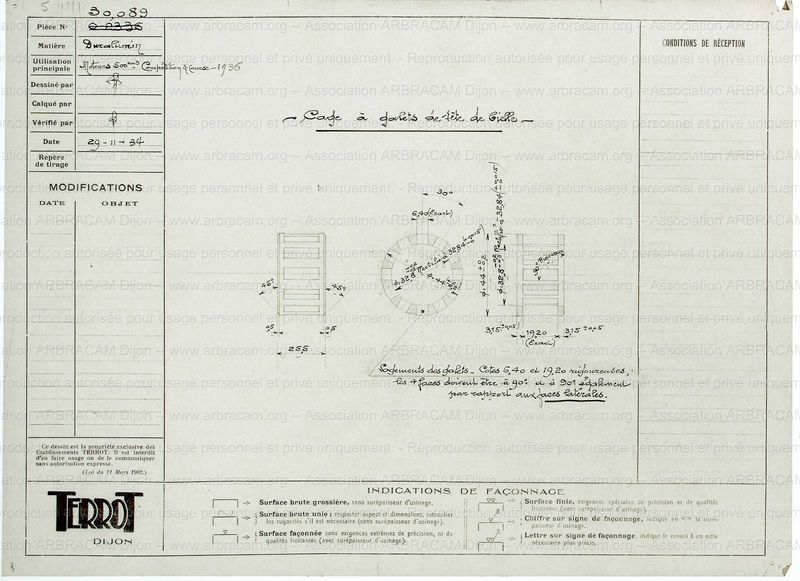 30,089
Pièce N°
Matière Duralumin
Utilisation
principale Moteurs 500 cm3 Compétition & Course - 1936
Dessiné par
Calqué par
Vérifié par
Date 29 - 11 - 34
Repère
de tirage
MODIFICATIONS
DATE OBJET
CONDITIONS DE RÉCEPTION
- Cage à galets de tête de bielle -
30°
6,40 (Exact)
45° 45°
0,5 0,5
25,5
3,15 (±0,05) 19,20 3,15 ±0,05
(Exact)
Logements des galets - Cotes 6,40 et 19,20 rigoureuses,
les 4 faces doivent être à 90° et à 90° également
par rapport aux faces latérales.
Ce dessin est la propriété exclusive des
Etablissements TERROT. Il est interdit
d'en faire usage ou de le communiquer
sans autorisation expresse.
(Loi du 11 Mars 1902.)
TERROT
DIJON
INDICATIONS DE FAÇONNAGE
Surface brute grossière, sans surépaisseur d'usinage.
Surface brute unie : respecter aspect et dimensions, retoucher
les rugosités s'il est nécessaire (sans surépaisseur d'usinage).
Surface façonnée sans exigences extrêmes de précision, ni de
qualités frottantes (avec surépaisseur d'usinage).
Surface finie, exigences spéciales de précision et de qualités
frottantes (avec surépaisseur d'usinage).
Chiffre sur signe de façonnage, indique en m/m la surépaisseur d'usinage.
Lettre sur signe de façonnage, indique le renvoi à une note
nécessaire plus précis.
www.arbracam.org -- Association ARBRACAM Dijon -- www.arbracam.org -- Association ARBRACAM Dijon
Reproduction autorisée pour usage personnel et privé uniquement.